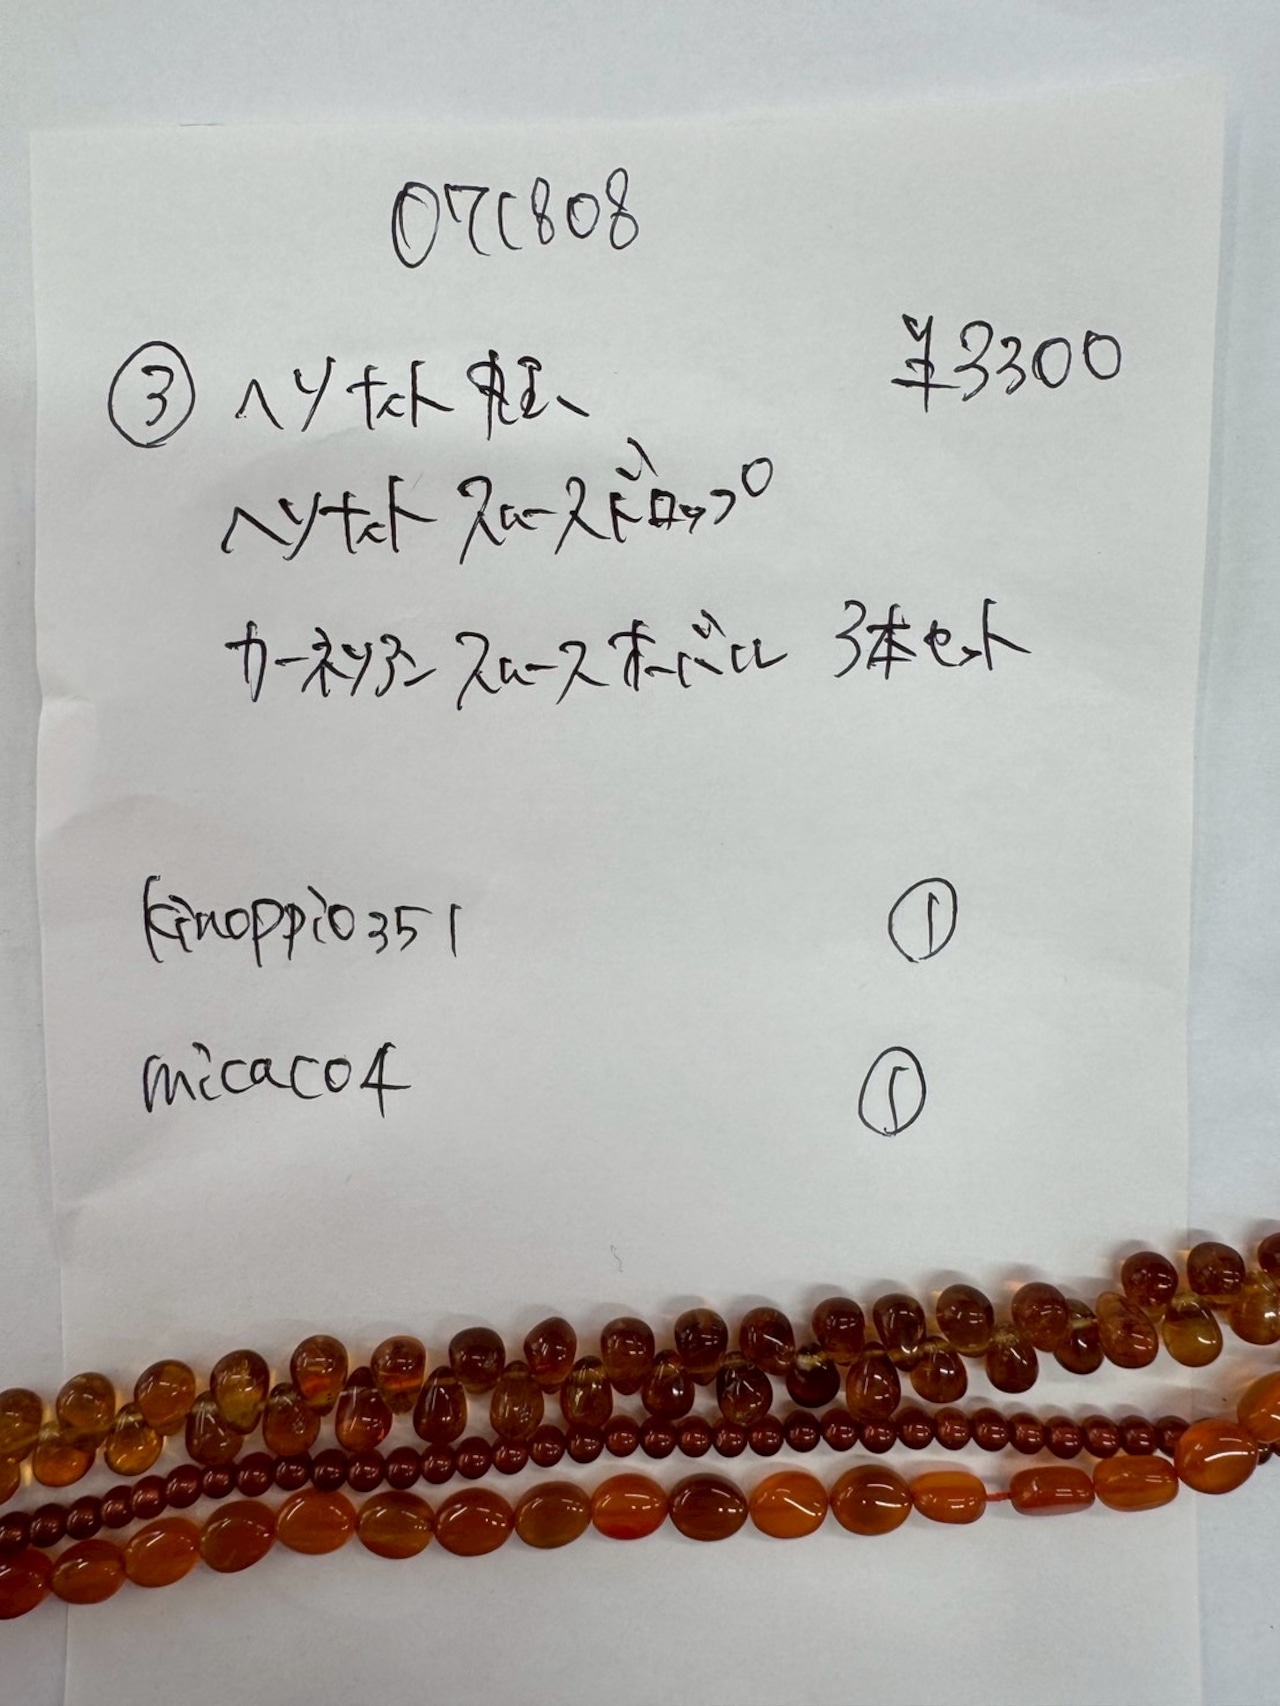 07C808
③ ヘソナイト 丸玉、 ¥3300
ヘソナイト スムースドロップ
カーネリアン スムースオーバル 3本セット
kinoppio351 ①
micaco4 ①